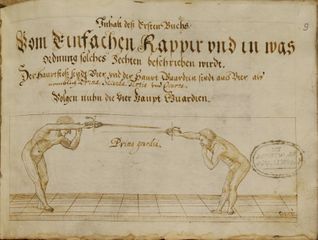 9
Inhalt deß Ersten Buchs
Vom Einfachen Rappir vnd in was
ordnung solches Fechten beschrieben wirdt.
Der Hauptstöß seyndt Vier, vnd der Haupt Guardien seindt auch Vier als
nemblich Prima, Secunda, Tertia vnd Quarta.
Volgen nuhn die vier Haupt Guardien.
Prima guardia.